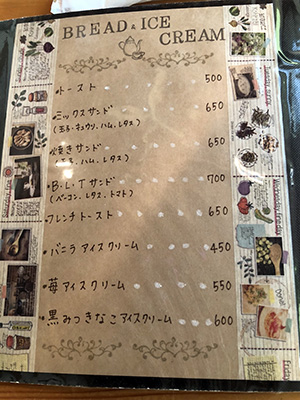 BREAD & ICE
CREAM
・トースト 500
・ミックスサンド 650
(玉子・キュウリ、ハム、レタス)
・焼きサンド 650
(玉子、ハム、レタス)
・B・L・Tサンド 700
(ベーコン、レタス、トマト)
・フレンチトースト 650
・バニラアイスクリーム 450
・苺アイスクリーム 550
・黒みつきなこアイスクリーム 600